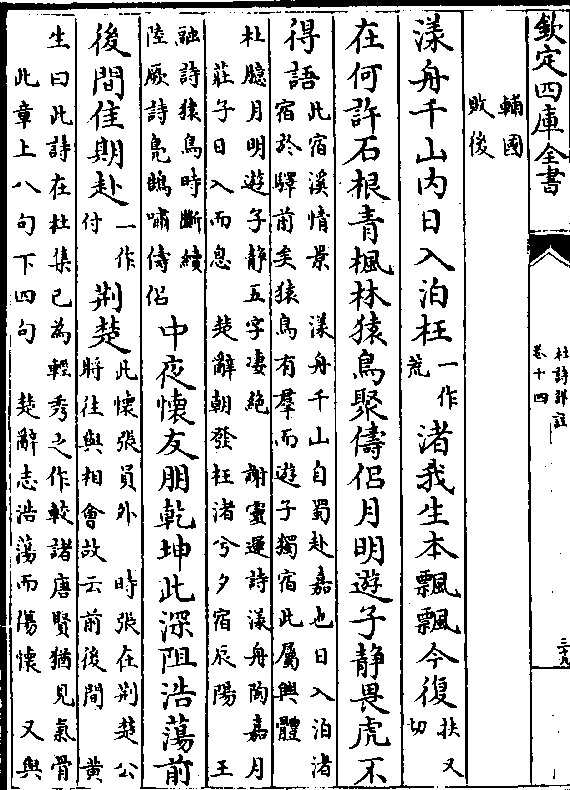 欽定四庫全書
杜詩詳註
卷十四
三十九
輔國
敗後
漾舟千山内日入泊枉一作荒渚我生本飄飄今復扶又切
在何許石根青楓林猿鳥聚儔侣月明遊子静畏虎不
得語
此宿溪情景 漾舟千山自蜀赴嘉也日入泊渚
宿於驛前矣猿鳥有羣而遊子獨宿此屬興體
杜臆月明遊子静五字凄絶 謝靈運詩漾舟陶嘉月
莊子日入而息 楚辭朝發枉渚兮夕宿辰陽 王
融詩猿鳥時斷續
陸厥詩鳧鵠嘯儔侣
中夜懷友朋乾坤此深阻浩蕩前
後間佳期赴一作付荆楚
此懷張員外 時張在荆楚公
將往與相會故云前後間 黄
生曰此詩在杜集已為輕秀之作較諸唐賢猶見氣骨
此章上八句下四句 楚辭志浩蕩而傷懷 又與